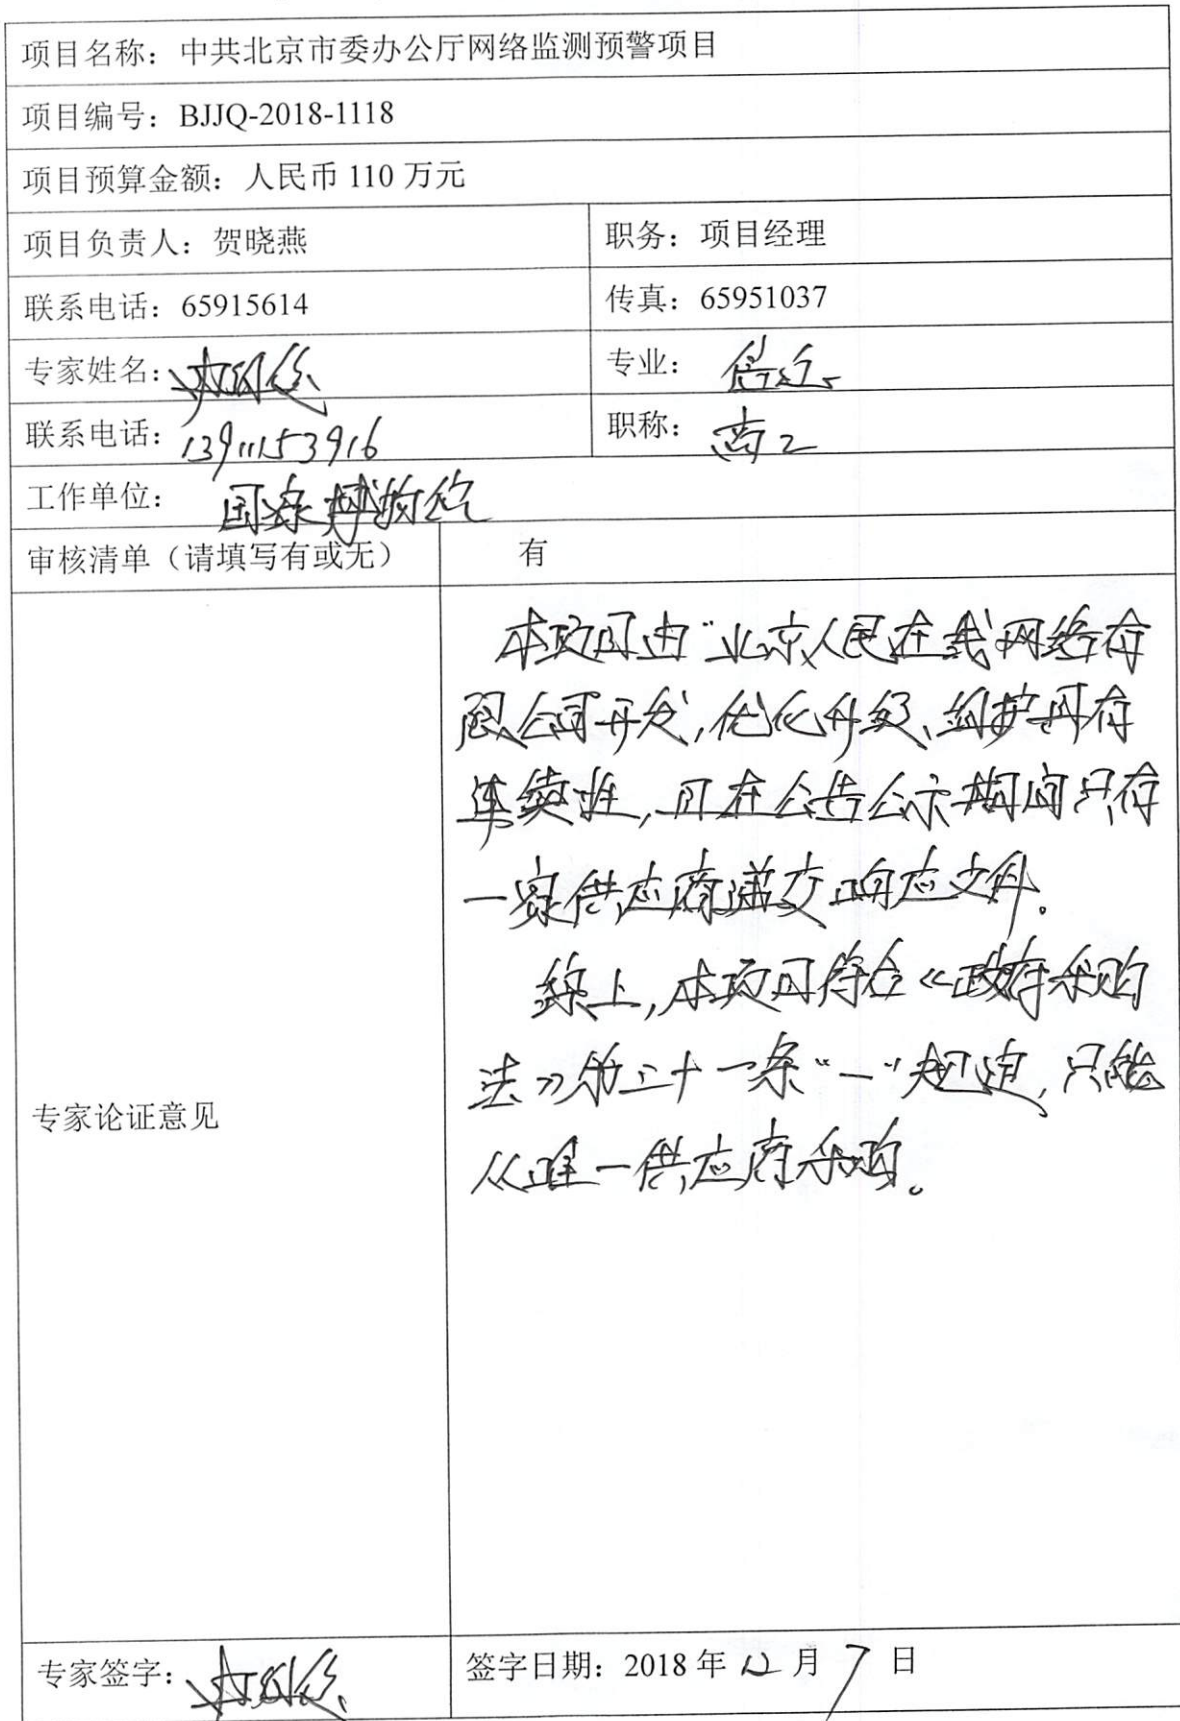 项目名称：中共北京市委办公厅网络监测预警项目
项目编号：BJJQ-2018-1118
项目预算金额：人民币 110 万元
项目负责人：贺晓燕
职务：项目经理
联系电话：65915614
传真：65951037
专家姓名：
专业：信息
联系电话：13911153916
职称：高工
工作单位：国家博物馆
审核清单（请填写有或无）
有
专家论证意见
本项目由“北京人民在线网络有
限公司开发,优化升级、维护具有
连续性,且在公告公示期间只有
一家供应商递交响应文件。
综上,本项目符合《政府采购
法》第三十一条“一”规定,只能
从唯一供应商采购。
专家签字：
签字日期：2018 年 12 月 7 日